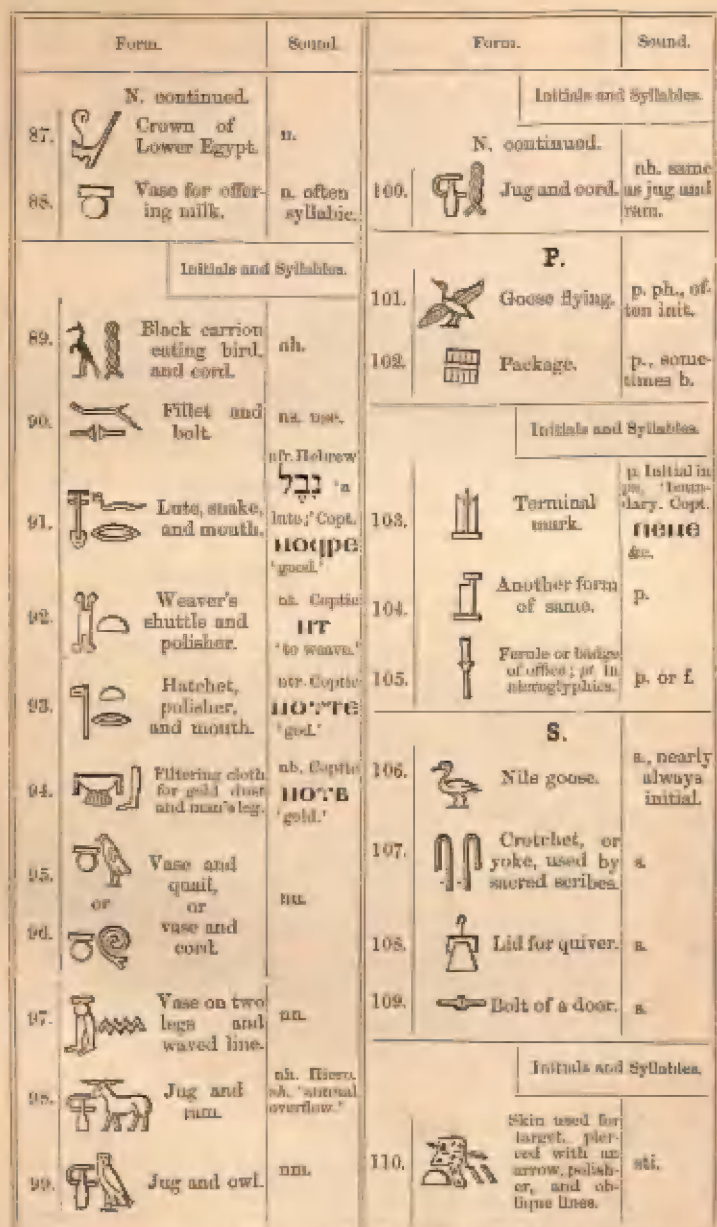 Form.
Sound.
N. continued.
87.
Crown of
Lower Egypt.
n.
88.
Vase for offer-
ing milk.
n. often
syllabic.
Initials and Syllables.
89.
Black carrion
eating bird,
and cord.
nh.
90.
Fillet and
bolt.
ns.
91.
Lute, snake,
and mouth.
nfr. Hebrew
נבל 'a
lute;' Copt.
ⲛⲟϥⲣⲉ
'good.'
92.
Weaver's
shuttle and
polisher.
nt. Coptic
ⲛⲧ
'to weave.'
93.
Hatchet,
polisher,
and mouth.
ntr. Coptic
ⲛⲟⲩⲧⲉ
'god.'
94.
Filtering cloth
for gold dust
and man's leg.
nb. Coptic
ⲛⲟⲩⲃ
'gold.'
95.
or
96.
Vase and
quail,
or
vase and
cord.
nu.
97.
Vase on two
legs and
waved line.
nn.
98.
Jug and
ram.
nh. Hiero.
nh. 'annual
overflow.'
99.
Jug and owl.
nm.
Form.
Sound.
Initials and Syllables.
N. continued.
100.
Jug and cord.
nh. same
as jug and
ram.
P.
101.
Goose flying.
p. ph., of-
ten init.
102.
Package.
p., some-
times b.
Initials and Syllables.
103.
Terminal
mark.
p. Initial in
'boun-
dary. Copt.
&c.
104.
Another form
of same.
p.
105.
Ferule or badge
of office; pt in
hieroglyphics.
p. or f.
S.
106.
Nile goose.
s., nearly
always
initial.
107.
Crotchet, or
yoke, used by
sacred scribes.
s.
108.
Lid for quiver.
s.
109.
Bolt of a door.
s.
Initials and Syllables.
110.
Skin used for
target, pier-
ced with an
arrow, polish-
er, and ob-
lique lines.
sti.